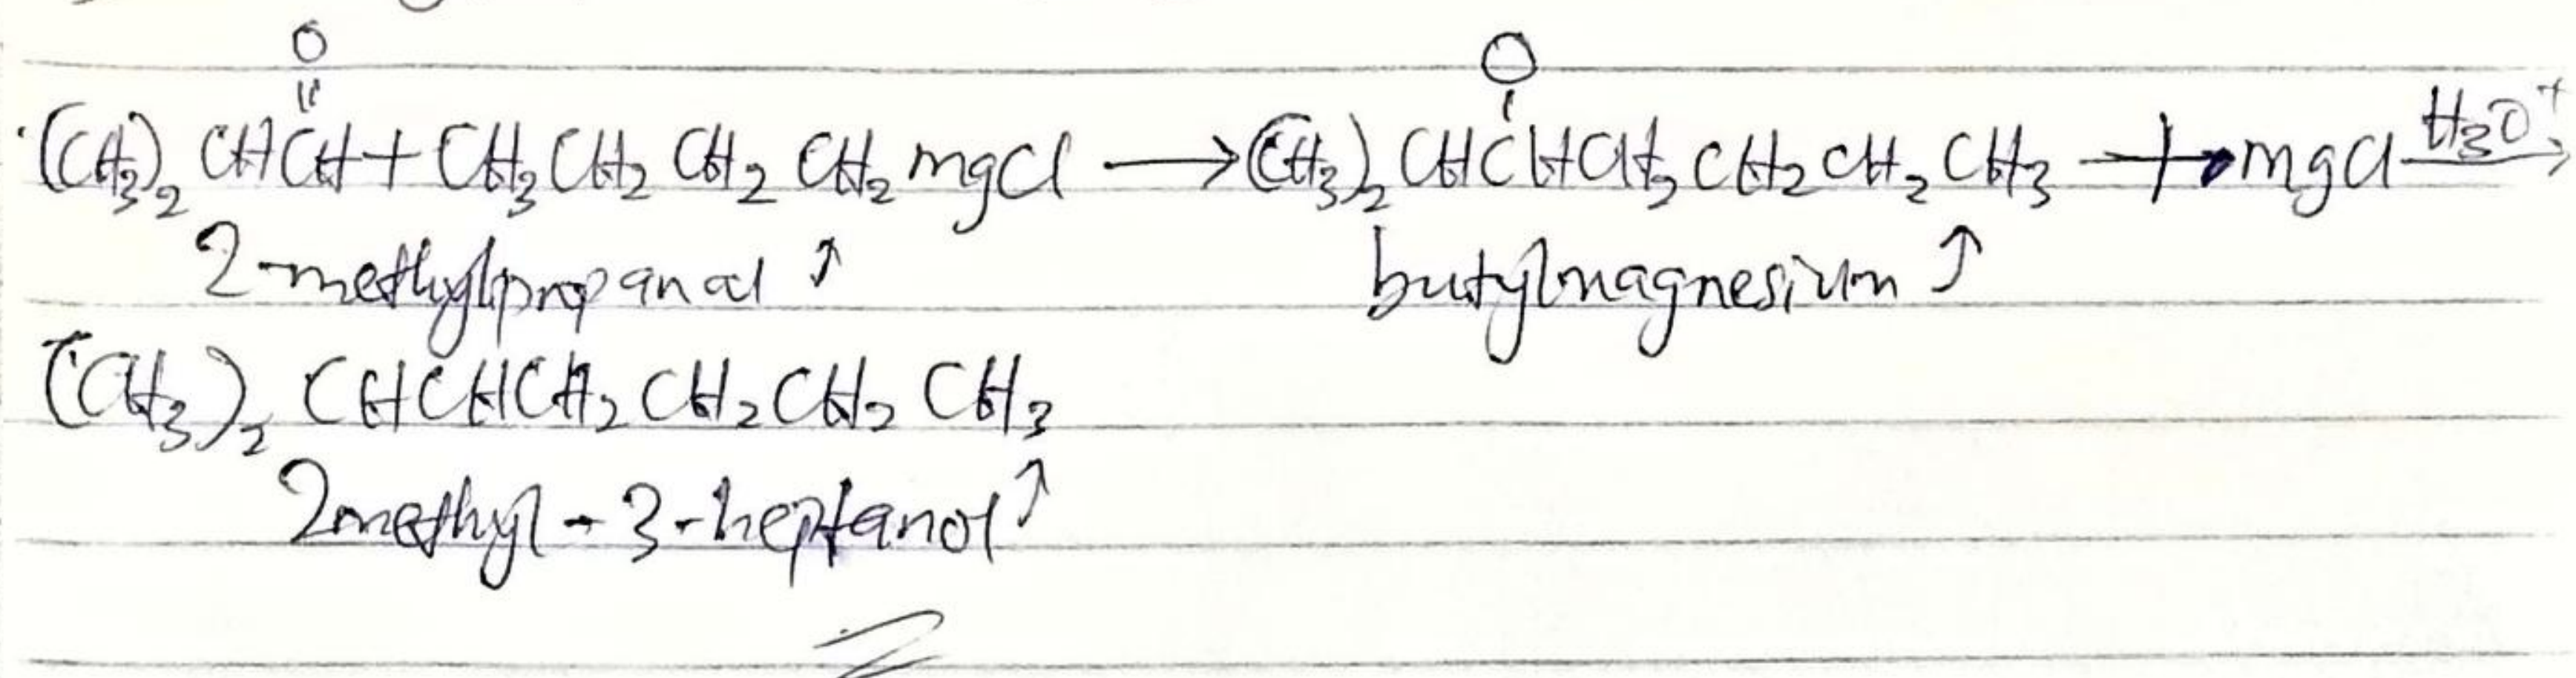 O O
|| |
(CH3)2 CHCH + CH3CH2 CH2 CH2 mgCl → (CH3)2 CHCHCH2 CH2 CH2 CH3 + mgCl H3O+ →
2-methylpropanal ↑ butylmagnesium ↑
(CH3)2 CHCHCH2 CH2 CH2 CH3
2methyl-3-heptanol ↑